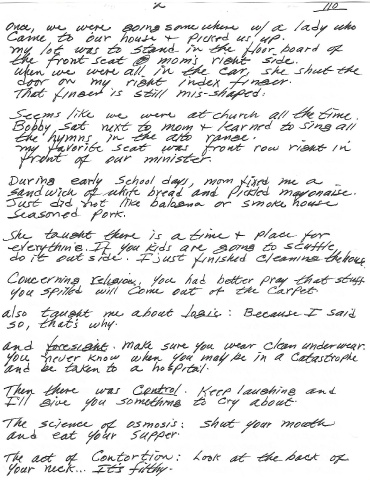 110
Once, we were going somewhere w/ a lady who
came to our house & picked us up.
my lot was to stand in the floor board of
the front seat @ mom's right side.
when we were all in the car, she shut the
door on my right index finger.
That finger is still mis-shaped.
Seems like we were at church all the time.
Bobby sat next to mom & learned to sing all
the hymns in the alto range.
my favorite seat was front row right in
front of our minister.
During early school days, mom fixed me a
sandwich of white bread and pickled mayonaise.
Just did not like balogna or smoke house
seasoned pork.
She taught there is a time & place for
everything. If you kids are going to scuffle,
do it out side. I just finished cleaning the house.
Concerning religion, you had better pray that stuff
you spilled will come out of the carpet
also taught me about logic: Because I said
so, that's why.
and foresight. make sure you wear clean underwear.
you never know when you may be in a catastrophe
and be taken to a hospital.
Then there was Control. Keep laughing and
I'll give you something to cry about.
The science of osmosis: shut your mouth
and eat your supper.
The act of Contortion: Look at the back of
your neck... It's filthy.